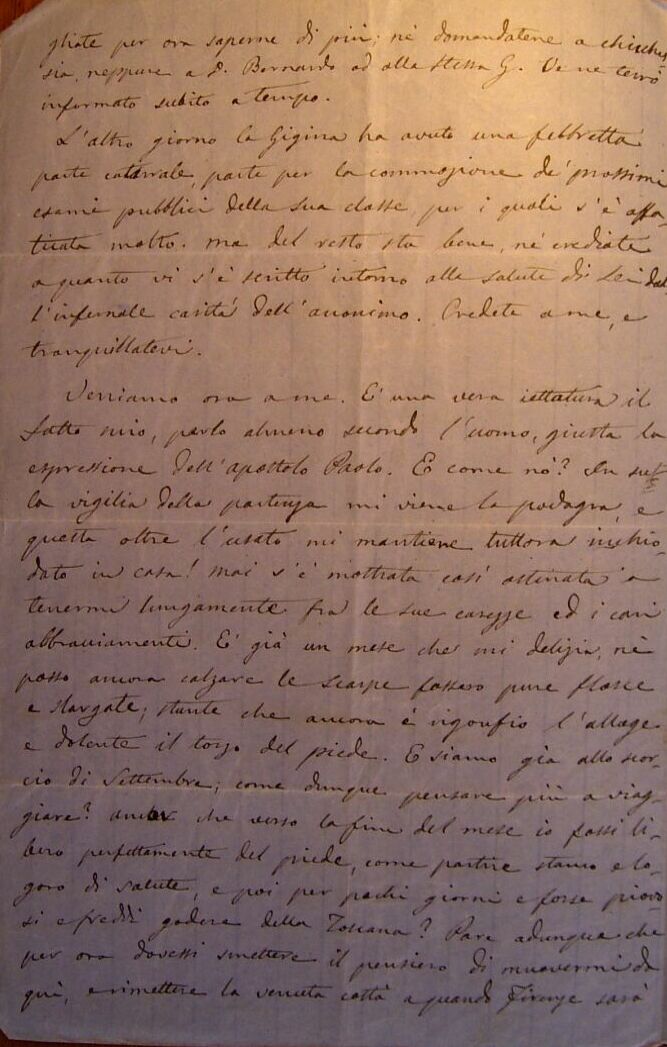 gliate per ora saperne di più; nè domandatene a chicches-
sia, neppure a D. Bernardo od alla stessa G. Ve ne terrò
informato subito a tempo.
L'altro giorno la Gigina ha avuto una febbretta
parte catarrale, parte per la commozione de' prossimi
esami pubblici della sua classe, per i quali s'è affa-
ticata molto. Ma del resto sta bene, nè crediate
a quanto vi s'è scritto intorno alla salute di Lei dal
l'infernale carità dell'anonimo. Credete a me, e
tranquillatevi.
Veniamo ora a me. E' una vera iettatura il
fatto mio, parlo almeno secondo l'uomo, giusta la
espressione dell'apostolo Paolo. E come nò? In sul
la vigilia della partenza mi viene la podagra, e
questa oltre l'usato mi mantiene tuttora inchio-
dato in casa! Mai s'è mostrata così ostinata a
tenermi lungamente fra le sue carezze ed i cari
abbracciamenti. E' già un mese che mi delizia, nè
posso ancora calzare le scarpe fossero pure flosce
e slargate; stante che ancora è rigonfio l'alluge
e dolente il torso del piede. E siamo già allo scor-
cio di Settembre; come dunque pensare più a viag-
giare? che verso la fine del mese io fossi li-
bero perfettamente del piede, come partire stanco e lo-
goro di salute, e poi per pochi giorni e forse piovo-
si e freddi godere della Toscana? Pare adunque che
per ora dovessi smettere il pensiero di muovermi da
quì, e rimettere la venuta costà a quando Firenze sarà